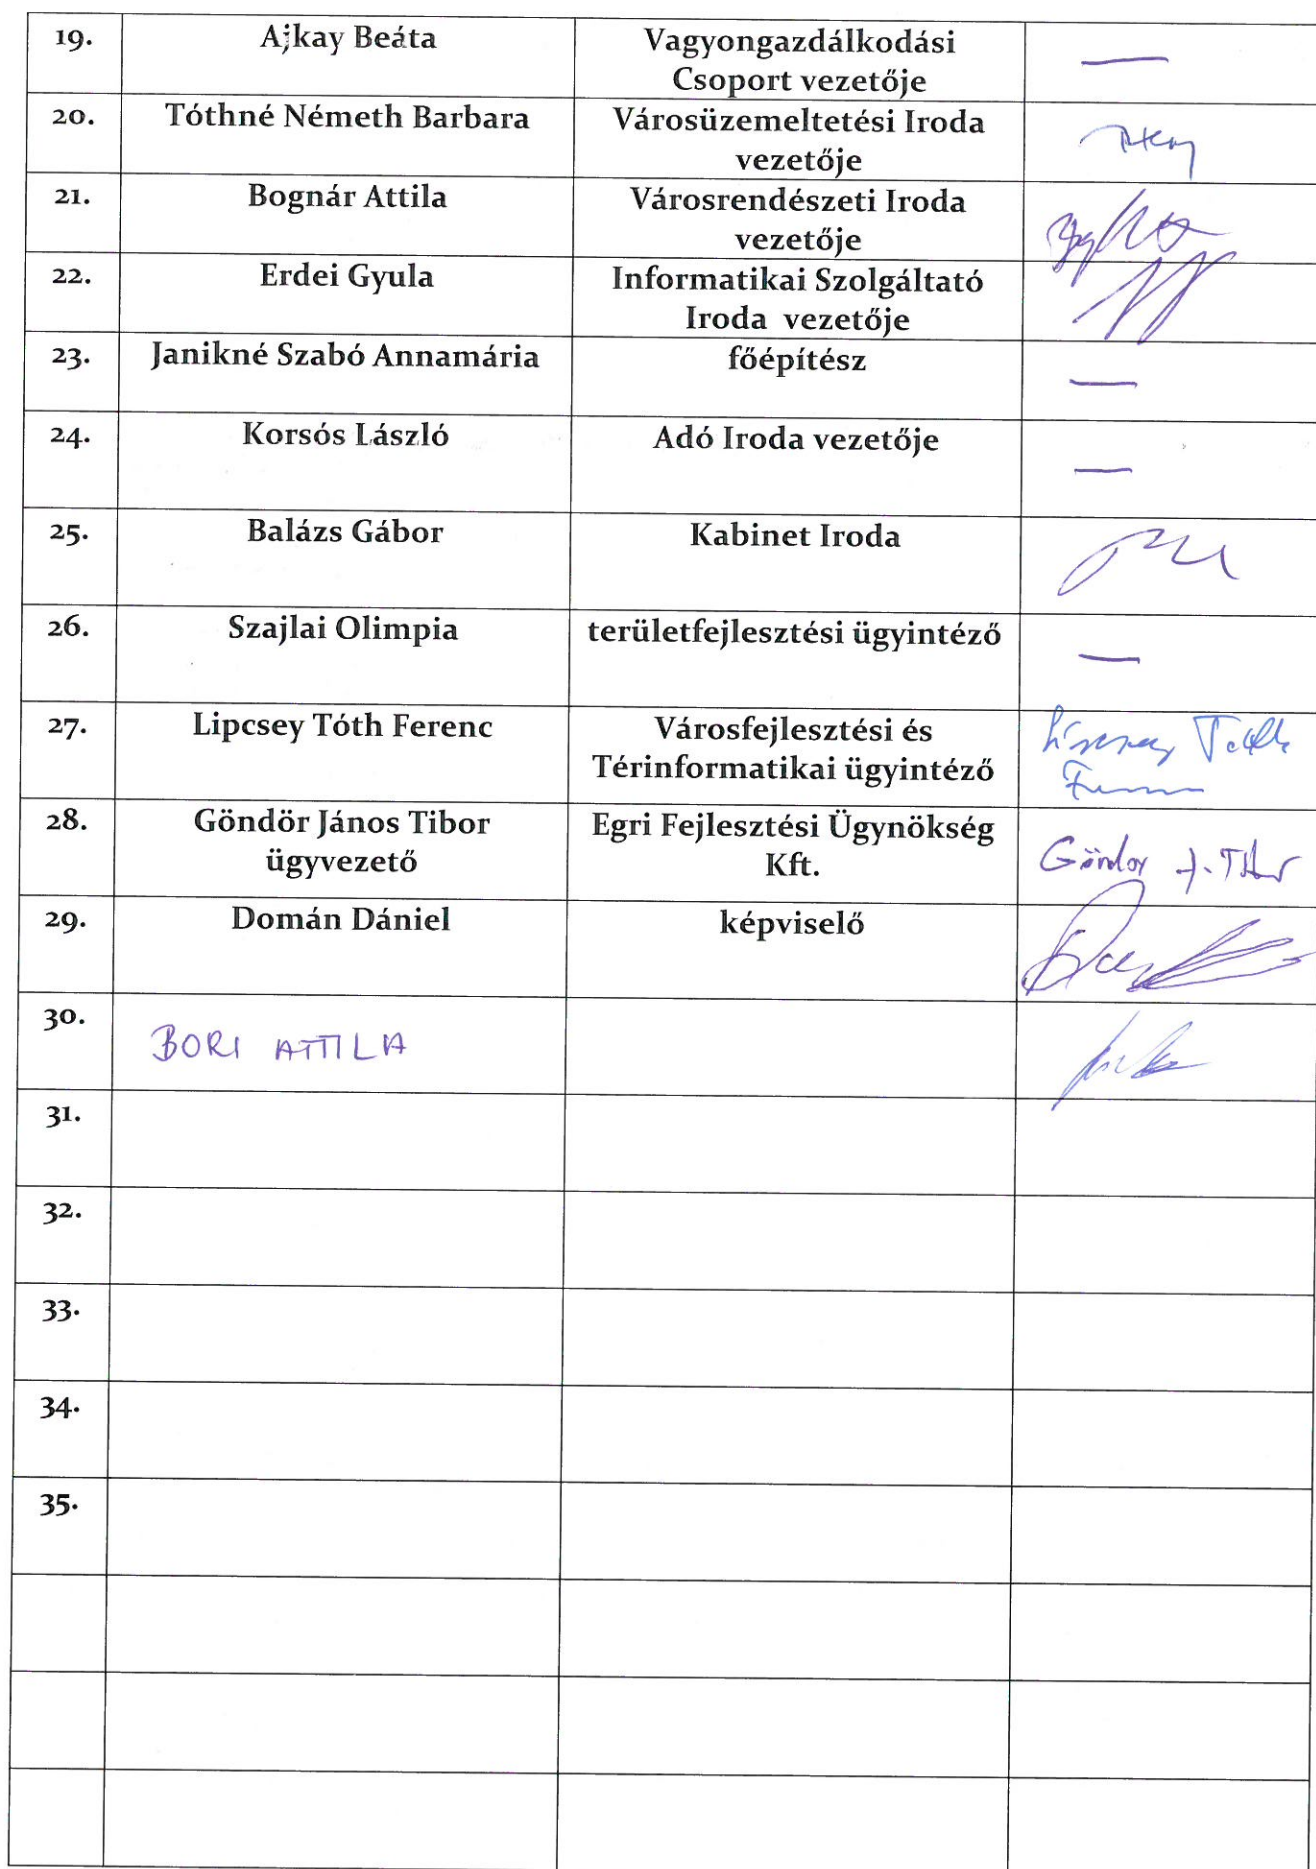 19. Ajkay Beáta Vagyongazdálkodási
Csoport vezetője —
20. Tóthné Németh Barbara Városüzemeltetési Iroda
vezetője
21. Bognár Attila Városrendészeti Iroda
vezetője
22. Erdei Gyula Informatikai Szolgáltató
Iroda vezetője
23. Janikné Szabó Annamária főépítész —
24. Korsós László Adó Iroda vezetője —
25. Balázs Gábor Kabinet Iroda
26. Szajlai Olimpia területfejlesztési ügyintéző —
27. Lipcsey Tóth Ferenc Városfejlesztési és
Térinformatikai ügyintéző
28. Göndör János Tibor Egri Fejlesztési Ügynökség
ügyvezető Kft.
29. Domán Dániel képviselő
30. BORI ATTILA
31.
32.
33.
34.
35.